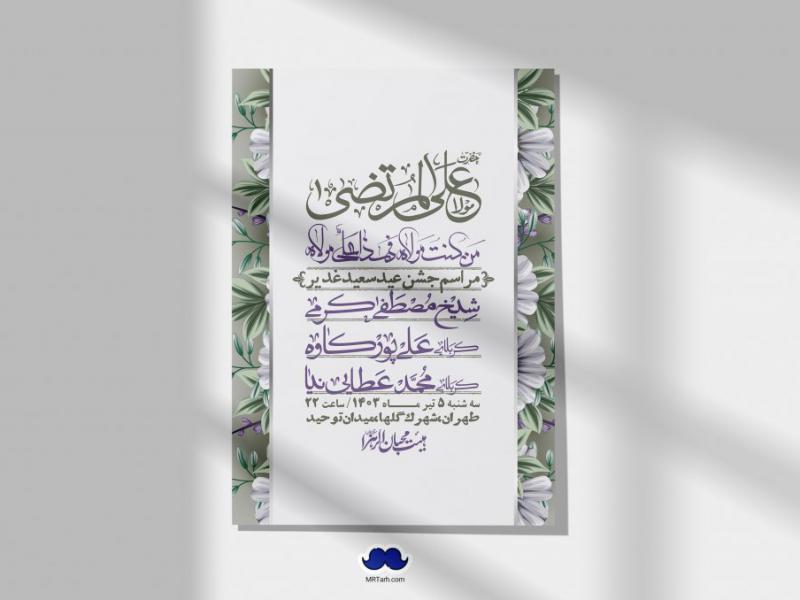 حضرت
مولا علی المرتضی
من كنت مولاه فهذا علي مولاه
مراسم جشن عید سعید غدیر
شیخ مصطفی کرمی
کربلائی علی پورکاوه
کربلائی محمد عطایی نیا
سه شنبه ۵ تیر ماه ۱۴۰۳ / ساعت ۲۲
طهران، شهرک گلها، میدان توحید
هیئت محبان الزهرا
MRTarh.com